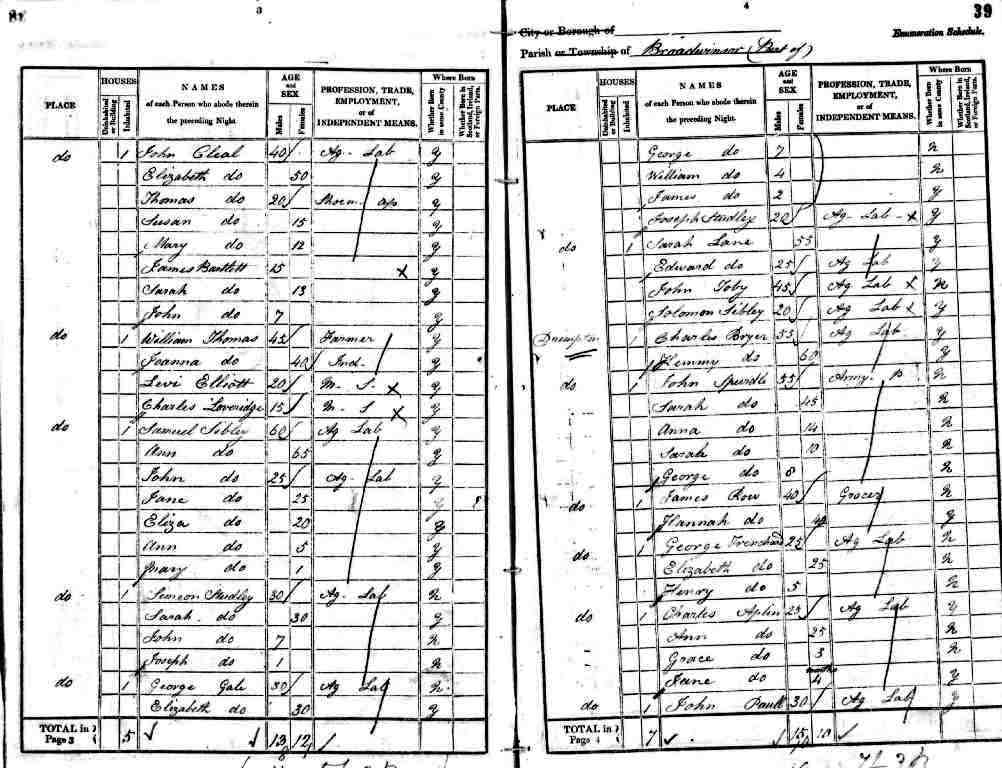 3
PLACE HOUSES Uninhabited or Building Inhabited NAMES of each Person who abode therein the preceding Night. AGE and SEX Males Females PROFESSION, TRADE, EMPLOYMENT, or of INDEPENDENT MEANS. Where Born Whether Born in same County Whether Born in Scotland, Ireland, or Foreign Parts.
do 1 John Cleal 40 Ag. Lab y
Elizabeth do 50 y
Thomas do 20 Shoem. ap y
Susan do 15 y
Mary do 12 y
James Bartlett 15 x y
Sarah do 13 y
John do 7 y
do 1 William Thomas 45 Farmer y
Joanna do 40 Ind. y
Levi Elliott 20 M. S. x y
Charles Loveridge 15 M. S x y
do 1 Samuel Sibley 60 Ag Lab y
Ann do 65 y
John do 25 Ag. Lab y
Jane do 25 y
Eliza do 20 y
Ann do 5 y
Mary do 1 y
do 1 Simeon Studley 30 Ag. Lab n
Sarah do 30 y
John do 7 n
Joseph do 1 n
do 1 George Gale 30 Ag Lab n
Elizabeth do 30 y
TOTAL in Page 3 5 13 12
4
39
City or Borough of
Enumeration Schedule.
Parish or Township of Broadwinsor (Part of)
PLACE HOUSES Uninhabited or Building Inhabited NAMES of each Person who abode therein the preceding Night. AGE and SEX Males Females PROFESSION, TRADE, EMPLOYMENT, or of INDEPENDENT MEANS. Where Born Whether Born in same County Whether Born in Scotland, Ireland, or Foreign Parts.
George do 7 n
William do 4 n
James do 2 y
Joseph Studley 20 Ag Lab x y
do 1 Sarah Lane 55 y
Edward do 25 Ag Lab y
John Toby 45 Ag Lab x n
Solomon Sibley 20 Ag Lab x y
Drimpton 1 Charles Bryer 55 Ag Lab y
Jemmy do 60 y
do 1 John Spurdle 55 Army. P. n
Sarah do 45 n
Anna do 14 n
Sarah do 10 n
George do 8 n
do 1 James Row 40 Grocer n
Hannah do 40 y
do 1 George Trenchard 25 Ag Lab n
Elizabeth do 25 n
Henry do 5 n
do 1 Charles Aplin 25 Ag Lab y
Ann do 25 n
Grace do 3 n
Jane do months 4 y
do 1 John Paull 30 Ag Lab y
TOTAL in Page 4 7 15 10